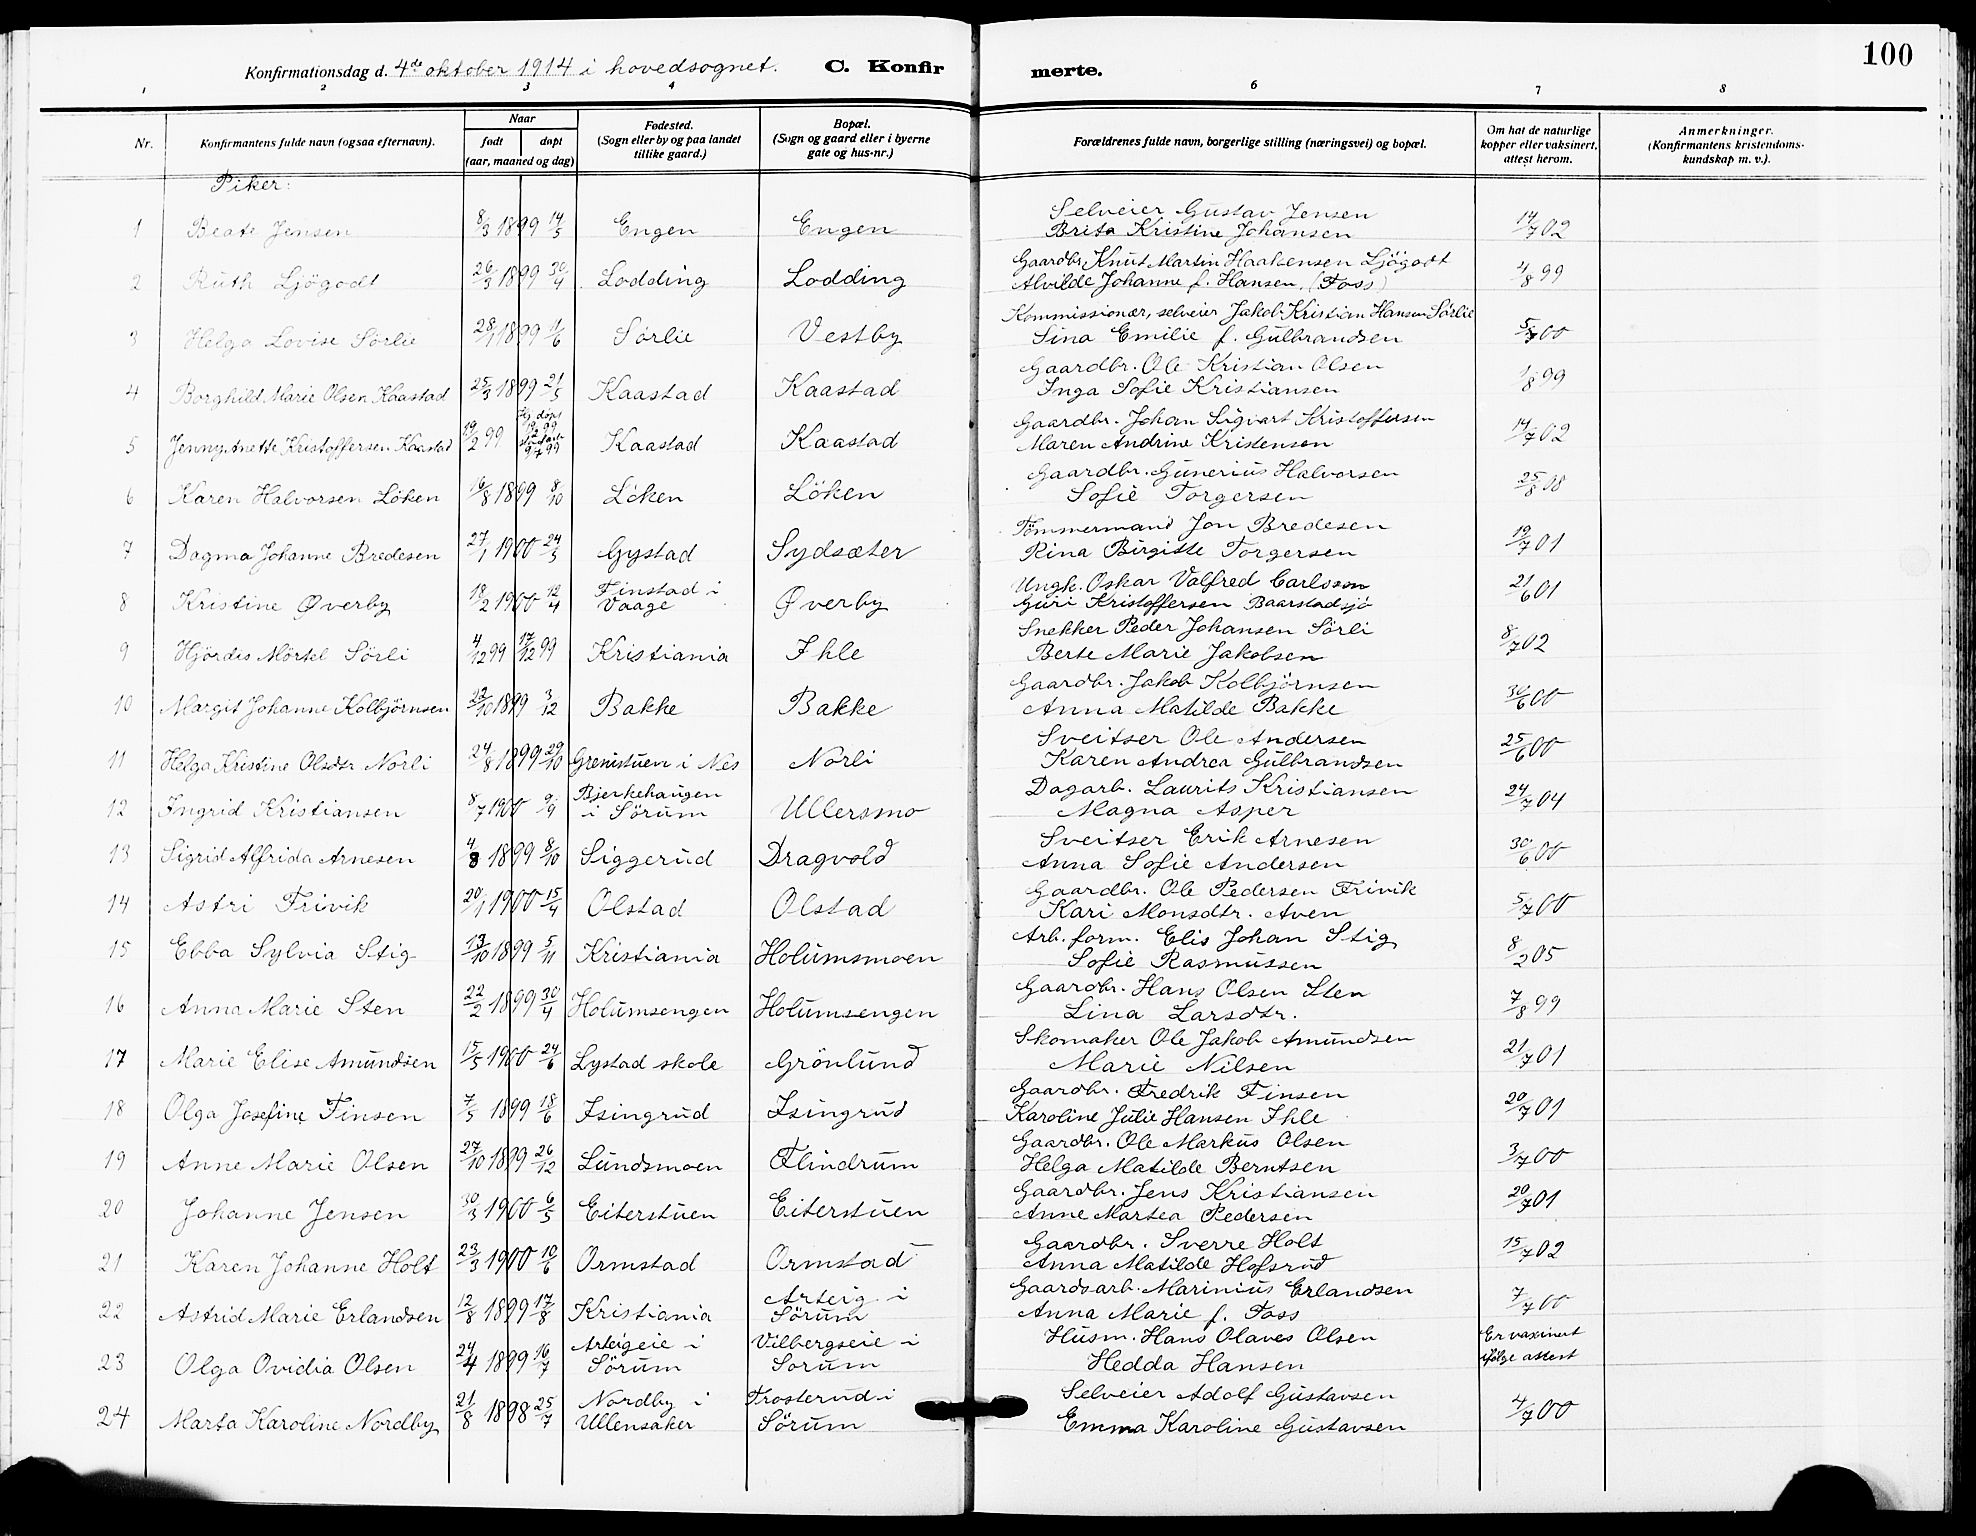 100
Konfirmationsdag d. 4de oktober 1914 i hovedsognet. C. Konfirmerte.
1 2 3 4 6 7 8
Nr. Konfirmantens fulde navn (ogsaa efternavn). Naar født døpt (aar, maaned og dag) Fødested. (Sogn eller by og paa landet tillike gaard.) Bopæl. (Sogn og gaard eller i byerne gate og hus-nr.) Forældrenes fulde navn, borgerlige stilling (næringsvei) og bopæl. Om hat de naturlige kopper eller vaksinert, attest herom. Anmerkninger. (Konfirmantens kristendomskundskap m. v.).
Piker:
1 Beate Jensen 8/3 1899 14/5 Engen Engen Selveier Gustav Jensen
Brita Kristine Johansen 14/7 02
2 Ruth Ljögodt 26/3 1899 30/4 Lodding Lodding Gaardbr. Knut Martin Haakensen Ljögodt
Alvilde Johanne f. Hansen, (Foss) 4/8 99
3 Helga Lovise Sörlie 28/1 1899 1/6 Sörlie Vestby Kommissionær, selveier Jakob Kristian Hansen Sörlie
Sina Emilie f. Gulbrandsen 5/7 00
4 Borghild Marie Olsen Kaastad 25/3 1899 21/5 Kaastad Kaastad Gaardbr. Ole Kristian Olsen
Inga Sofie Kristiansen 1/8 99
5 Jenny Anette Kristoffersen Kaastad 19/2 99 Hj. døpt Kaastad Kaastad Gaardbr. Johan Sigvart Kristoffersen
Maren Andrine Kristensen 14/7 02
6 Karen Halvorsen Löken 16/8 1899 8/10 Löken Löken Gaardbr. Gunerius Halvorsen
Sofie Torgersen 25/8 08
7 Dagma Johanne Bredesen 27/1 1900 24/5 Gystad Sydsæter Tömmermand Jon Bredesen
Rina Birgitte Torgersen 19/7 01
8 Kristine Øverby 18/2 1900 12/4 Finstad i Vaage Øverby Ungk. Oskar Valfred Carlsson
Guri Kristoffersen Baarstadsjö 21/6 01
9 Hjördis Mörkl Sörli 4/12 99 17/12 99 Kristiania Ihle Snekker Peder Johansen Sörli
Berte Marie Jakobsen 8/7 02
10 Margit Johanne Kolbjörnsen 22/10 1899 3/12 Bakke Bakke Gaardbr. Jakob Kolbjörnsen
Anna Matilde Bakke 30/6 00
11 Helga Kristine Olsdtr Norli 24/8 1899 29/10 Grenistuen i Nes Norli Sveitser Ole Andersen
Karen Andrea Gulbrandsen 25/6 00
12 Ingrid Kristiansen 8/7 1900 9/9 Bjerkehaugen i Sörum Ullersmo Dagarb. Laurits Kristiansen
Magna Asper 24/7 04
13 Sigrid Alfrida Arnesen 4/8 1899 8/10 Siggerud Dragvold Sveitser Erik Arnesen
Anna Sofie Andersen 30/6 00
14 Astri Frivik 20/1 1900 15/4 Olstad Olstad Gaardbr. Ole Pedersen Frivik
Kari Monsdtr. Aven 5/7 00
15 Ebba Sylvia Stig 13/10 1899 5/11 Kristiania Holumsmoen Arb. form. Elis Johan Stig
Sofie Rasmussen 8/2 05
16 Anna Marie Sten 22/2 1899 30/4 Holumsengen Holumsengen Gaardbr. Hans Olsen Sten
Lina Larsdtr. 7/8 99
17 Marie Elise Amundsen 15/5 1900 24/6 Lystad skole Grönlund Skomaker Ole Jakob Amundsen
Marie Nilsen 21/7 01
18 Olga Josefine Finsen 7/5 1899 18/6 Isingrud Isingrud Gaardbr. Fredrik Finsen
Karoline Julie Hansen Ihle 20/7 01
19 Anne Marie Olsen 27/10 1899 26/12 Lundsmoen Flindrum Gaardbr. Ole Markus Olsen
Helga Matilde Berntsen 3/7 00
20 Johanne Jensen 30/3 1900 6/5 Eiterstuen Eiterstuen Gaardbr. Jens Kristiansen
Anne Martea Pedersen 20/7 01
21 Karen Johanne Holt 23/3 1900 10/6 Ormstad Ormstad Gaardbr. Sverre Holt
Anna Matilde Hofsrud 15/7 02
22 Astrid Marie Erlandsen 12/8 1899 17/8 Kristiania Arteig i Sörum Gaardsarb. Marinius Erlandsen
Anna Marie f. Foss 7/7 00
23 Olga Ovidia Olsen 24/4 1899 16/7 Arteigeie i Sörum Vilbergseie i Sorum Husm. Hans Olaves Olsen
Hedda Hansen Er vaxinert ifölge attest
24 Marta Karoline Nordby 21/8 1898 25/7 Nordby i Ullensaker Frosterud i Sörum Selveier Adolf Gustavsen
Emma Karoline Gustavsen 4/7 00